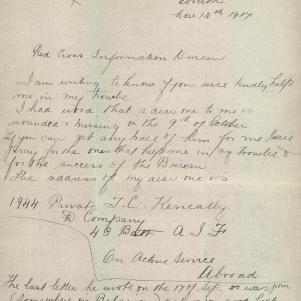 Nov 12th 1917
Red Cross Information Bureau
I am writing to know if you use kindly help
me in my trouble
I had word that a dear one to me is
wounded & missing on the 9th of October
If you can get any trace of him for me I will
pray for the ones that help me in my trouble &
for the success of the Bureau
The address of my dear one is
1944 Private T. C. Keneally
D Company
4 B Batt A I F
On Active Service
Abroad
The last letter he wrote on the 17th Sep. or was from